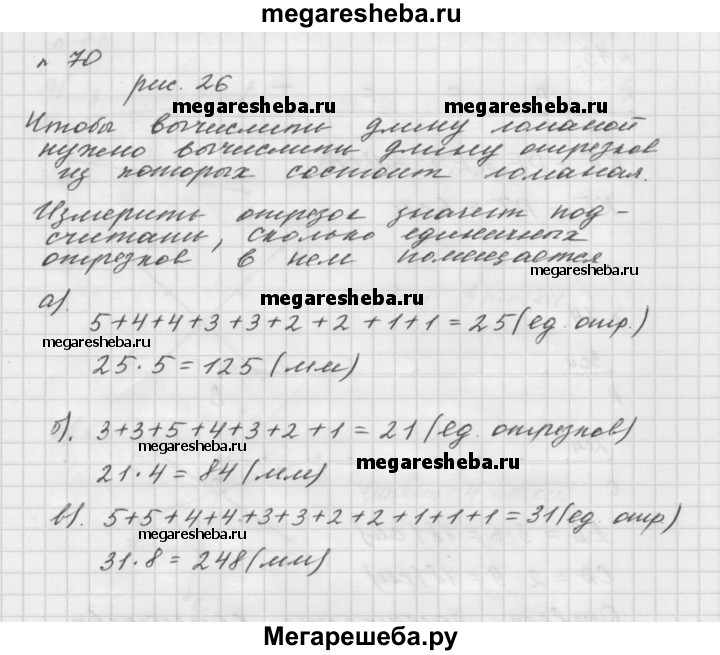 megaresheba.ru
№ 70
рис. 26
megaresheba.ru megaresheba.ru
Чтобы вычислить длину ломаной
нужно вычислить длину отрезков
из которых состоит ломаная.
Измерить отрезок значит под-
считать, сколько единичных
отрезков в нем помещается
megaresheba.ru
а). megaresheba.ru
5+4+4+3+3+2+2+1+1=25(ед. отр.)
megaresheba.ru
25·5=125(мм)
б). 3+3+5+4+3+2+1=21(ед. отрезков)
megaresheba.ru
21·4=84(мм) megaresheba.ru
в). 5+5+4+4+3+3+2+2+1+1+1=31(ед. отр)
megaresheba.ru
31·8=248(мм)
Мегарешеба.ру